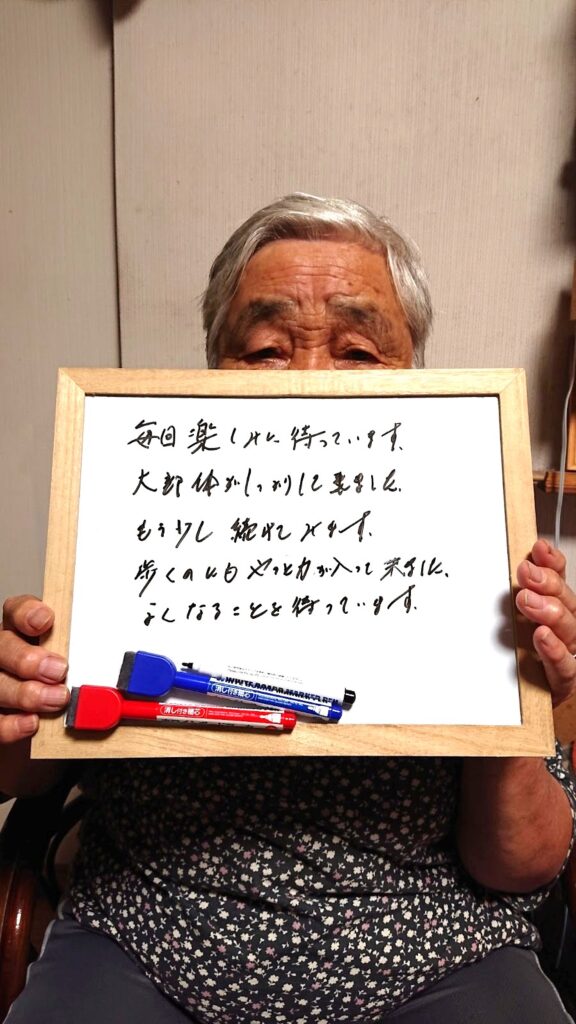 毎日楽しみに待っています。
大部体がしっかりして来ました。
もう少し続けてみます。
歩くのにもやっと力が入って来ました、
よくなることを待っています。
消し付き細芯
消し付き細芯